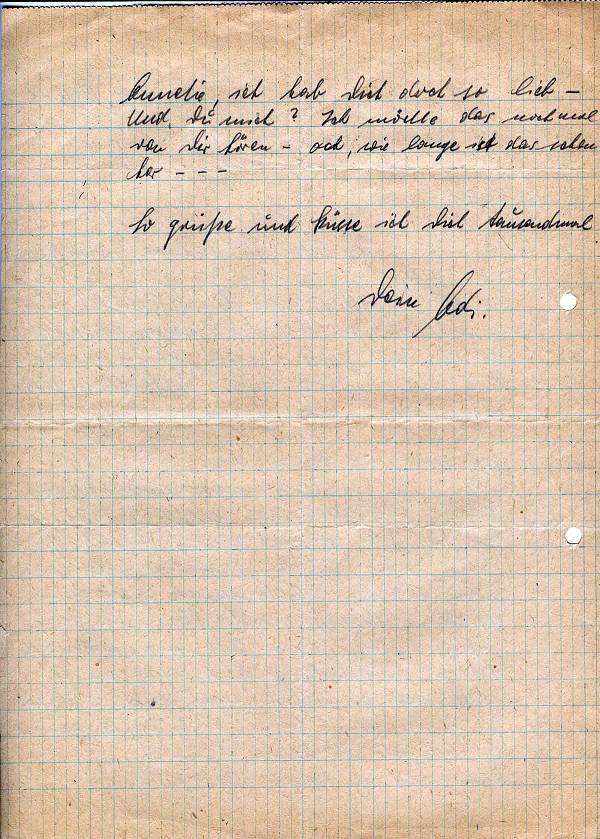 Annelie, ich hab Dich doch so lieb –
Und Du mich? Ich möchte das noch mal
von Dir hören – ach, wie lange ist das schon
her – – –
So grüße und küsse ich Dich tausendmal
Dein Adi.